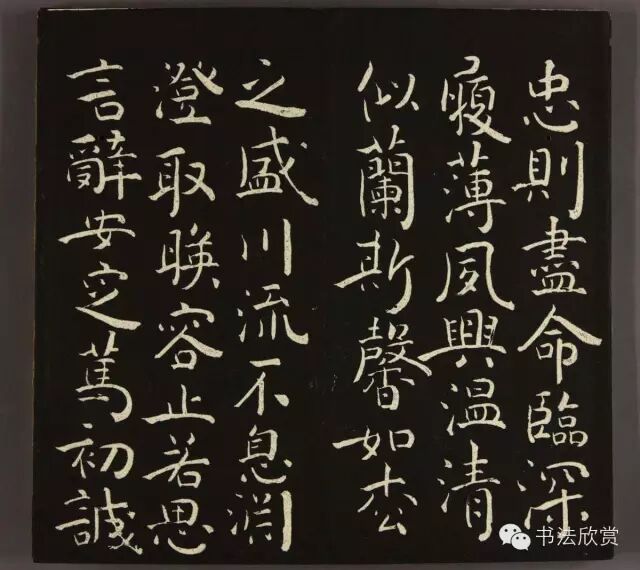 忠則盡命臨深
履薄夙興温清
似蘭斯馨如枩
之盛川流不息渊
澄取暎容止若思
言辭安定篤初誠
书法欣赏